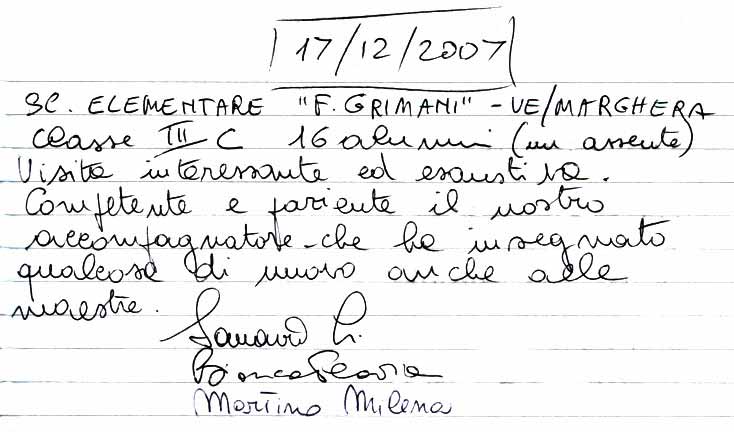 17/12/2007
SC. ELEMENTARE "F. GRIMANI" - VE/MARGHERA
Classe III C 16 alunni (un assente)
Visita interessante ed esaustiva.
Competente e paziente il nostro
accompagnatore che ha insegnato
qualcosa di nuovo anche alle
maestre.
Martino Milena